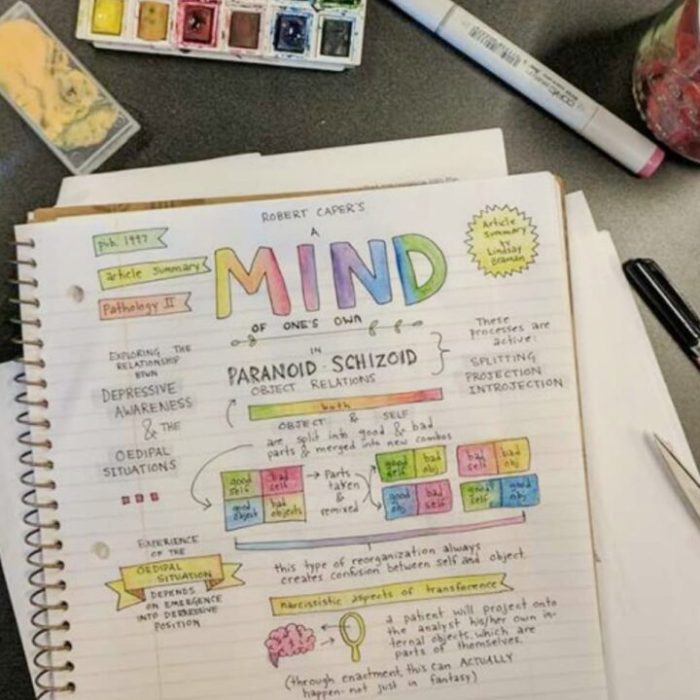 ROBERT CAPER'S
A
MIND
OF ONE'S OWN
pub. 1997
article summary
Pathology II
Article
Summary
by
Lindsay
Braman
EXPLORING THE
RELATIONSHIP
BTWN
DEPRESSIVE
AWARENESS
& THE
OEDIPAL
SITUATIONS
IN
PARANOID-SCHIZOID
OBJECT RELATIONS
These
processes are
active:
SPLITTING
PROJECTION
INTROJECTION
both
OBJECT & SELF
are split into good & bad
parts & merged into new combos
good self
bad self
good object
bad objects
→ Parts
taken
&
remixed
good self
bad obj
bad self
bad obj
good obj
bad self
good self
good obj
this type of reorganization always
creates confusion between self and object.
EXPERIENCE
OF THE
OEDIPAL
SITUATION
DEPENDS
ON EMERGENCE
INTO DEPRESSIVE
POSITION
narcissistic aspects of transference
a patient will project onto
the analyst his/her own in-
ternal objects, which are
parts of themselves.
(through enactment, this can ACTUALLY
happen - not just in fantasy)